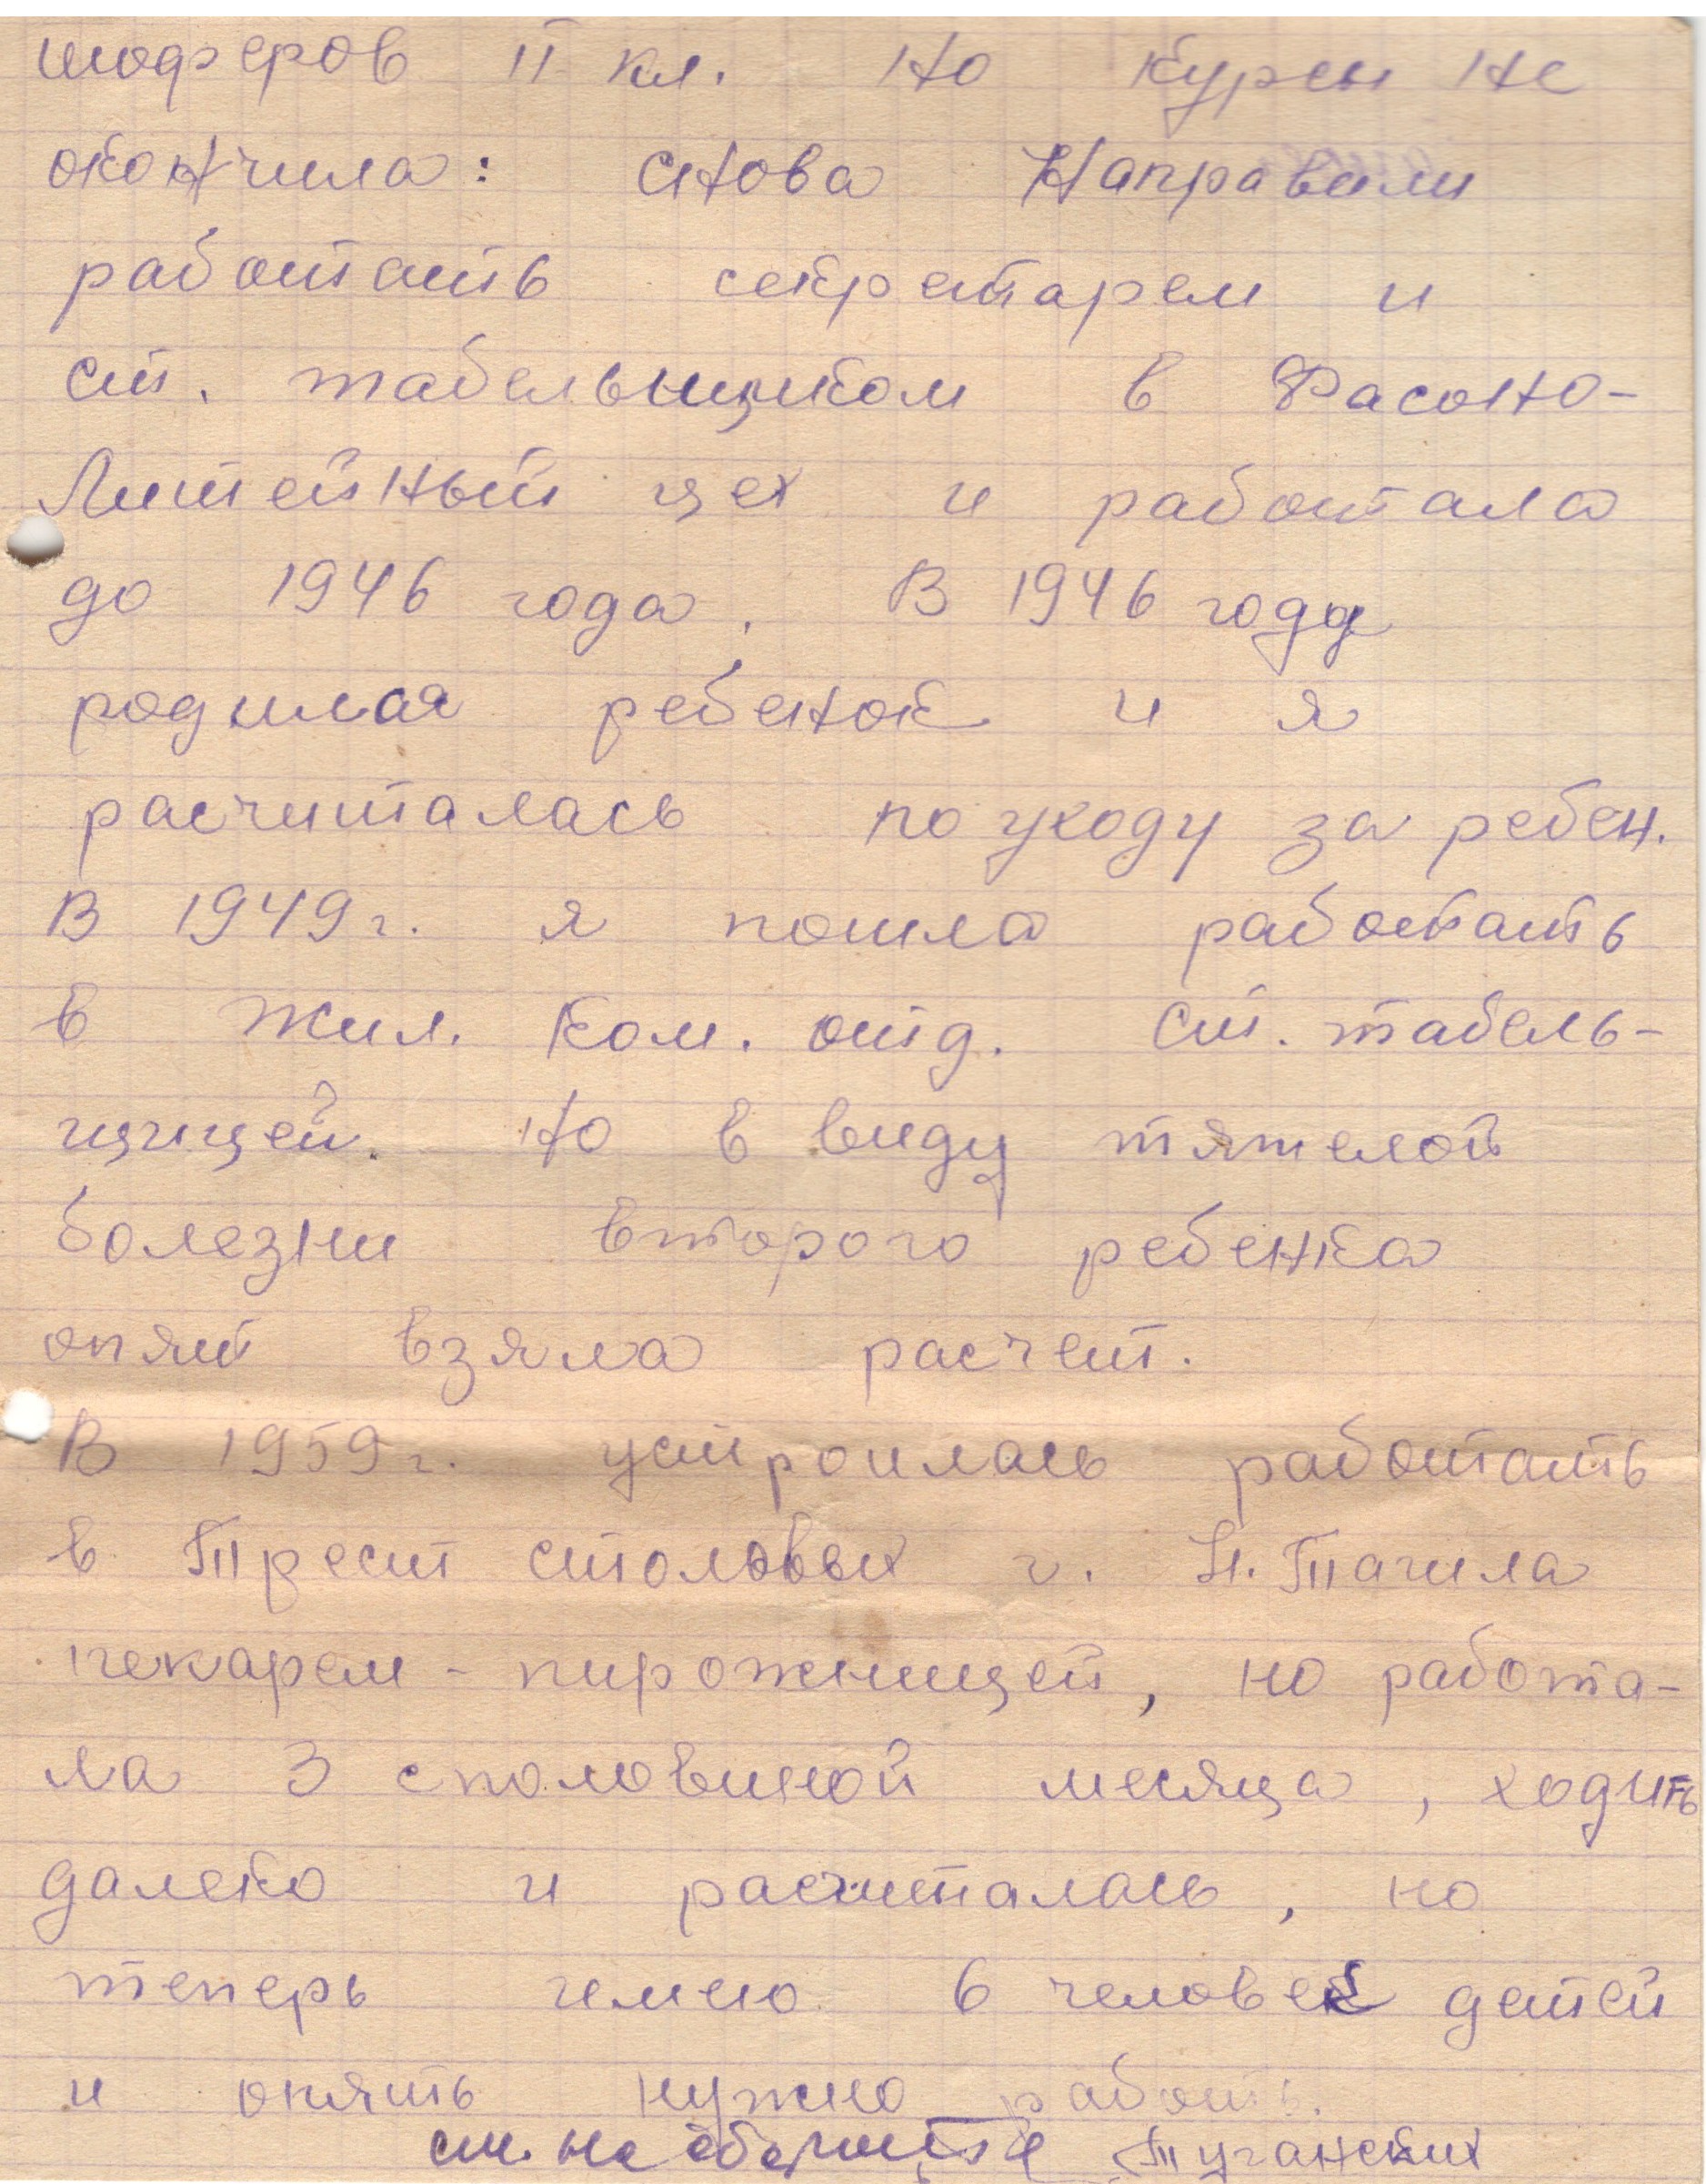 шоферов II кл. Но курсы не
окончила: снова Направили
работать секретарем и
ст. табельщиком в Фасоно-
Литейный цех и работала
до 1946 года. В 1946 году
родился ребенок и я
расчиталась по уходу за ребен.
В 1949г. я пошла работать
в Жил. Ком. отд. ст. табель-
щицей. Но в виду тяжелой
болезни второго ребенка
опят взяла расчет.
В 1959г. устроилась работать
в Трест столовых г. Н. Тагила
пекарем - пирожницей, но работа-
ла 3 споловиной месяца, ходить
далеко и расчиталась, но
теперь имею 6 человек детей
и опять нужно работь.
см. на обороте